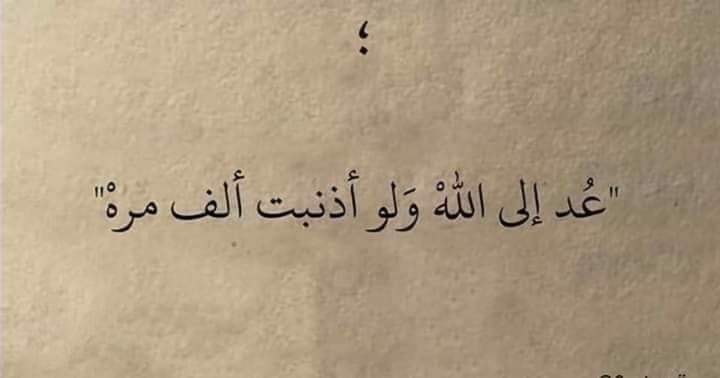 ؛
"عُد إلى اللهْ وَلو أذنبت ألف مرهْ"